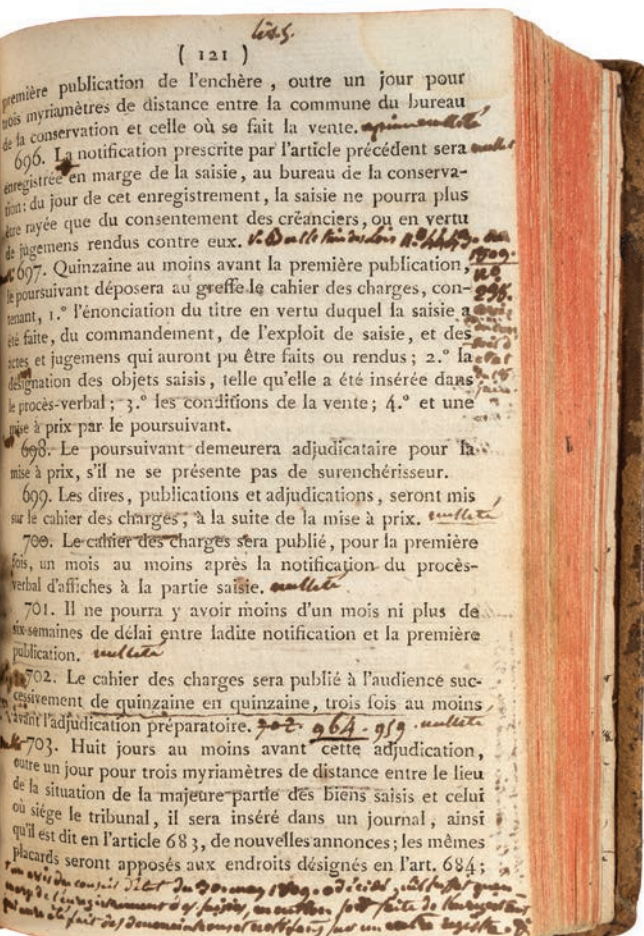 ( 121 )
première publication de l'enchère, outre un jour pour
trois myriamètres de distance entre la commune du bureau
de la conservation et celle où se fait la vente.
696. La notification prescrite par l'article précédent sera nullité
enregistrée en marge de la saisie, au bureau de la conserva-
tion: du jour de cet enregistrement, la saisie ne pourra plus
être rayée que du consentement des créanciers, ou en vertu
de jugemens rendus contre eux. V. Bulletin des lois n.º
1809.
697. Quinzaine au moins avant la première publication, nº
le poursuivant déposera au greffe le cahier des charges, con- 296.
tenant, 1.º l'énonciation du titre en vertu duquel la saisie a
été faite, du commandement, de l'exploit de saisie, et des
actes et jugemens qui auront pu être faits ou rendus; 2.º la
désignation des objets saisis, telle qu'elle a été insérée dans
le procès-verbal; 3.º les conditions de la vente; 4.º et une
mise à prix par le poursuivant.
698. Le poursuivant demeurera adjudicataire pour la
mise à prix, s'il ne se présente pas de surenchérisseur.
699. Les dires, publications et adjudications, seront mis
sur le cahier des charges, à la suite de la mise à prix. nullité
700. Le cahier des charges sera publié, pour la première
fois, un mois au moins après la notification du procès-
verbal d'affiches à la partie saisie. nullité
701. Il ne pourra y avoir moins d'un mois ni plus de
six semaines de délai entre ladite notification et la première
publication. nullité
702. Le cahier des charges sera publié à l'audience suc-
cessivement de quinzaine en quinzaine, trois fois au moins
avant l'adjudication préparatoire. 702. 964. 959. nullité
703. Huit jours au moins avant cette adjudication,
outre un jour pour trois myriamètres de distance entre le lieu
de la situation de la majeure partie des biens saisis et celui
où siége le tribunal, il sera inséré dans un journal, ainsi
qu'il est dit en l'article 683, de nouvelles annonces; les mêmes
placards seront apposés aux endroits désignés en l'art. 684;